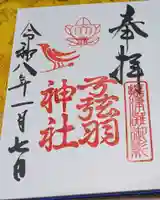 奉拝
弓弦羽
神社
令和八年一月七日